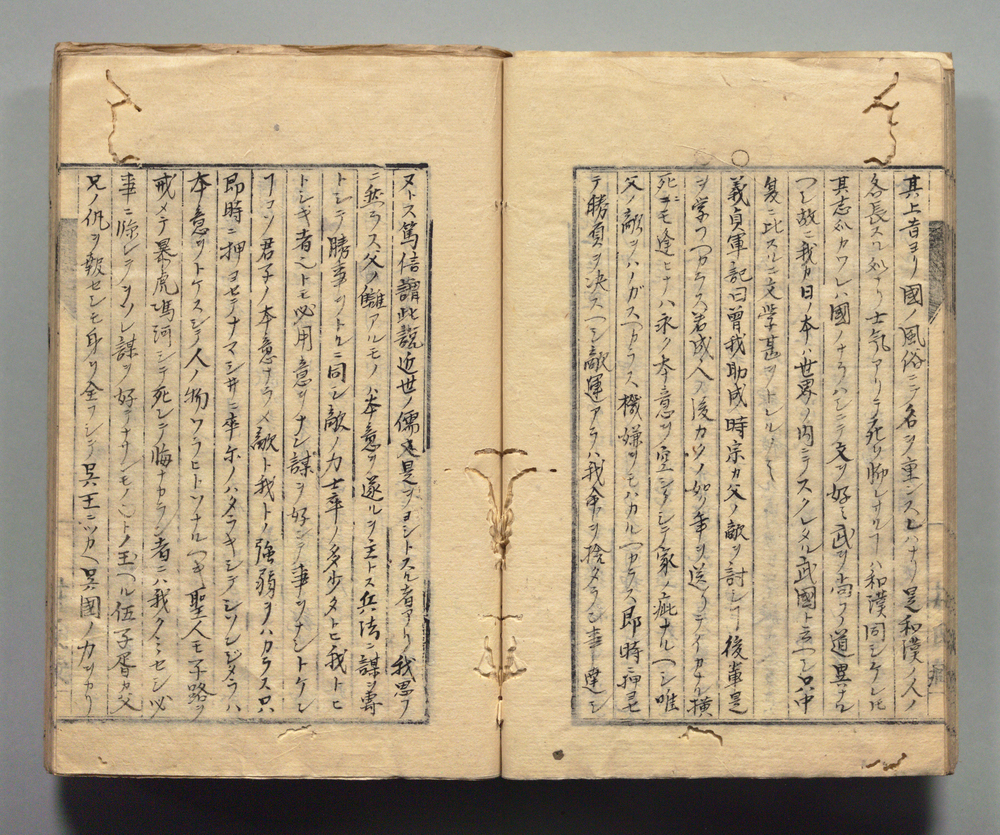 其上昔ヨリ國ノ風俗ニテ名ヲ重ンスレハナリ是和漢ノ人ノ
各長スル処ナリ士気アリテ死ヲ師レサルヿハ和漢同シケレ𪜈
其志処カワレハ國ノナラハシニテ文ヲ好ミ武ヲ尚フノ道異ナル
ヘシ故ニ我カ日ノ本ハ世界ノ内ニテスクレタル武國ト云ヘシ
ニ此スルニ文学甚ヲトレル
義貞軍記曰曽我助成時宗カ父ノ敵ヲ討シヿ後輩是
ヲ学フヘカラス若成人ノ後カクノ如ク年ヲ送リテイカナル横
死ニモ逢ヒナハ永ク本意ヲ空シクシテ家ノ疵ナルヘシ唯
父ノ敵ヲハノガスヘカラス機嫌ヲモハカルヘカラス即時ニ押ヨセ
テ勝負ヲ决スヘシ敵運アラハ我命ヲ捨タランニ事達シ
ヌトス篤信謂此説近世ノ儒是ヲヨシトスル者アリ我思フ
ニ然ラス父ノ讎アルモノハ本意ヲ遂ルヲ主トス兵法ニ謀ヲ專
トシテ勝事ヲトルニ同シ敵ノ力士卒ノ多少タトヒ我トヒ
トシキ者ヘトモ必用意ヲナシ謀ヲ好シテ事ヲナシトケン
ヿコソ君子ノ本意ナラメ敵ト我トノ強弱ヲハカラス只
即時ニ押ヨセテナマシ井ニ卒尓ノハタラキシテシソンジタラハ
本意ヲトケスシテ人ノ物ワラヒトソナルヘキ聖人モ子路ヲ
戒メテ暴虎馮河シテ死シテ悔ナカラン者ニハ我クミセシ必
事ニ臨レテヲソレ謀ヲ好テナサンモノヘトノ玉ヘル伍子胥カ父
兄ノ仇ヲ報センモ身ヲ全フシテ呉王ニツカヘ呉國ノ力ヲカリ